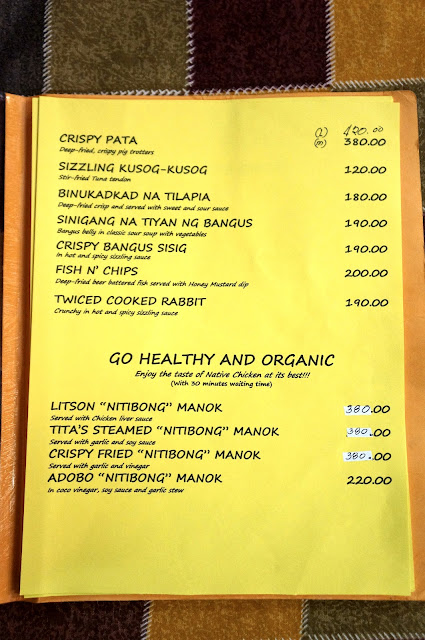 CRISPY PATA (L) 420.00
Deep-fried, crispy pig trotters (M) 380.00
SIZZLING KUSOG-KUSOG 120.00
Stir-fried Tuna tendon
BINUKADKAD NA TILAPIA 180.00
Deep-fried crisp and served with sweet and sour sauce
SINIGANG NA TIYAN NG BANGUS 190.00
Bangus belly in classic sour soup with vegetables
CRISPY BANGUS SISIG 190.00
In hot and spicy sizzling sauce
FISH N' CHIPS 200.00
Deep-fried beer battered fish served with Honey Mustard dip
TWICED COOKED RABBIT 190.00
Crunchy in hot and spicy sizzling sauce
GO HEALTHY AND ORGANIC
Enjoy the taste of Native Chicken at its best!!!
(With 30 minutes waiting time)
LITSON “NITIBONG” MANOK 380.00
Served with Chicken liver sauce
TITA'S STEAMED “NITIBONG” MANOK 380.00
Served with garlic and soy sauce
CRISPY FRIED “NITIBONG” MANOK 380.00
Served with garlic and vinegar
ADOBO “NITIBONG” MANOK 220.00
In coco vinegar, soy sauce and garlic stew